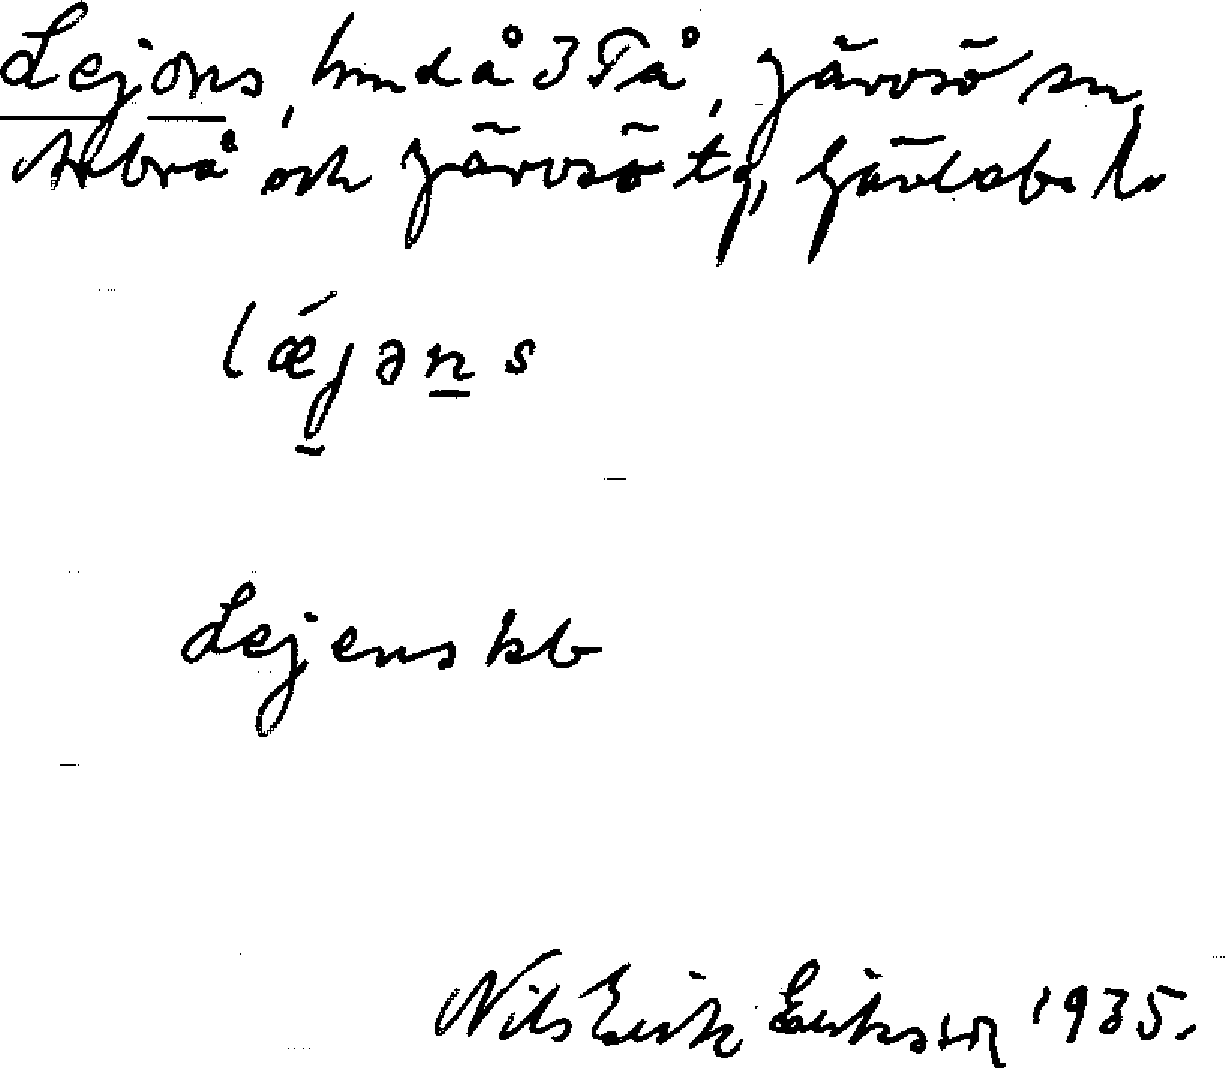 Lejons, hmd å 3 Tå, Järvsö sn,
Arbrå och Järvsö tg, Gävlebs l.
lǽjəns
Lejens kb
Nils Erik Eriksson 1935.